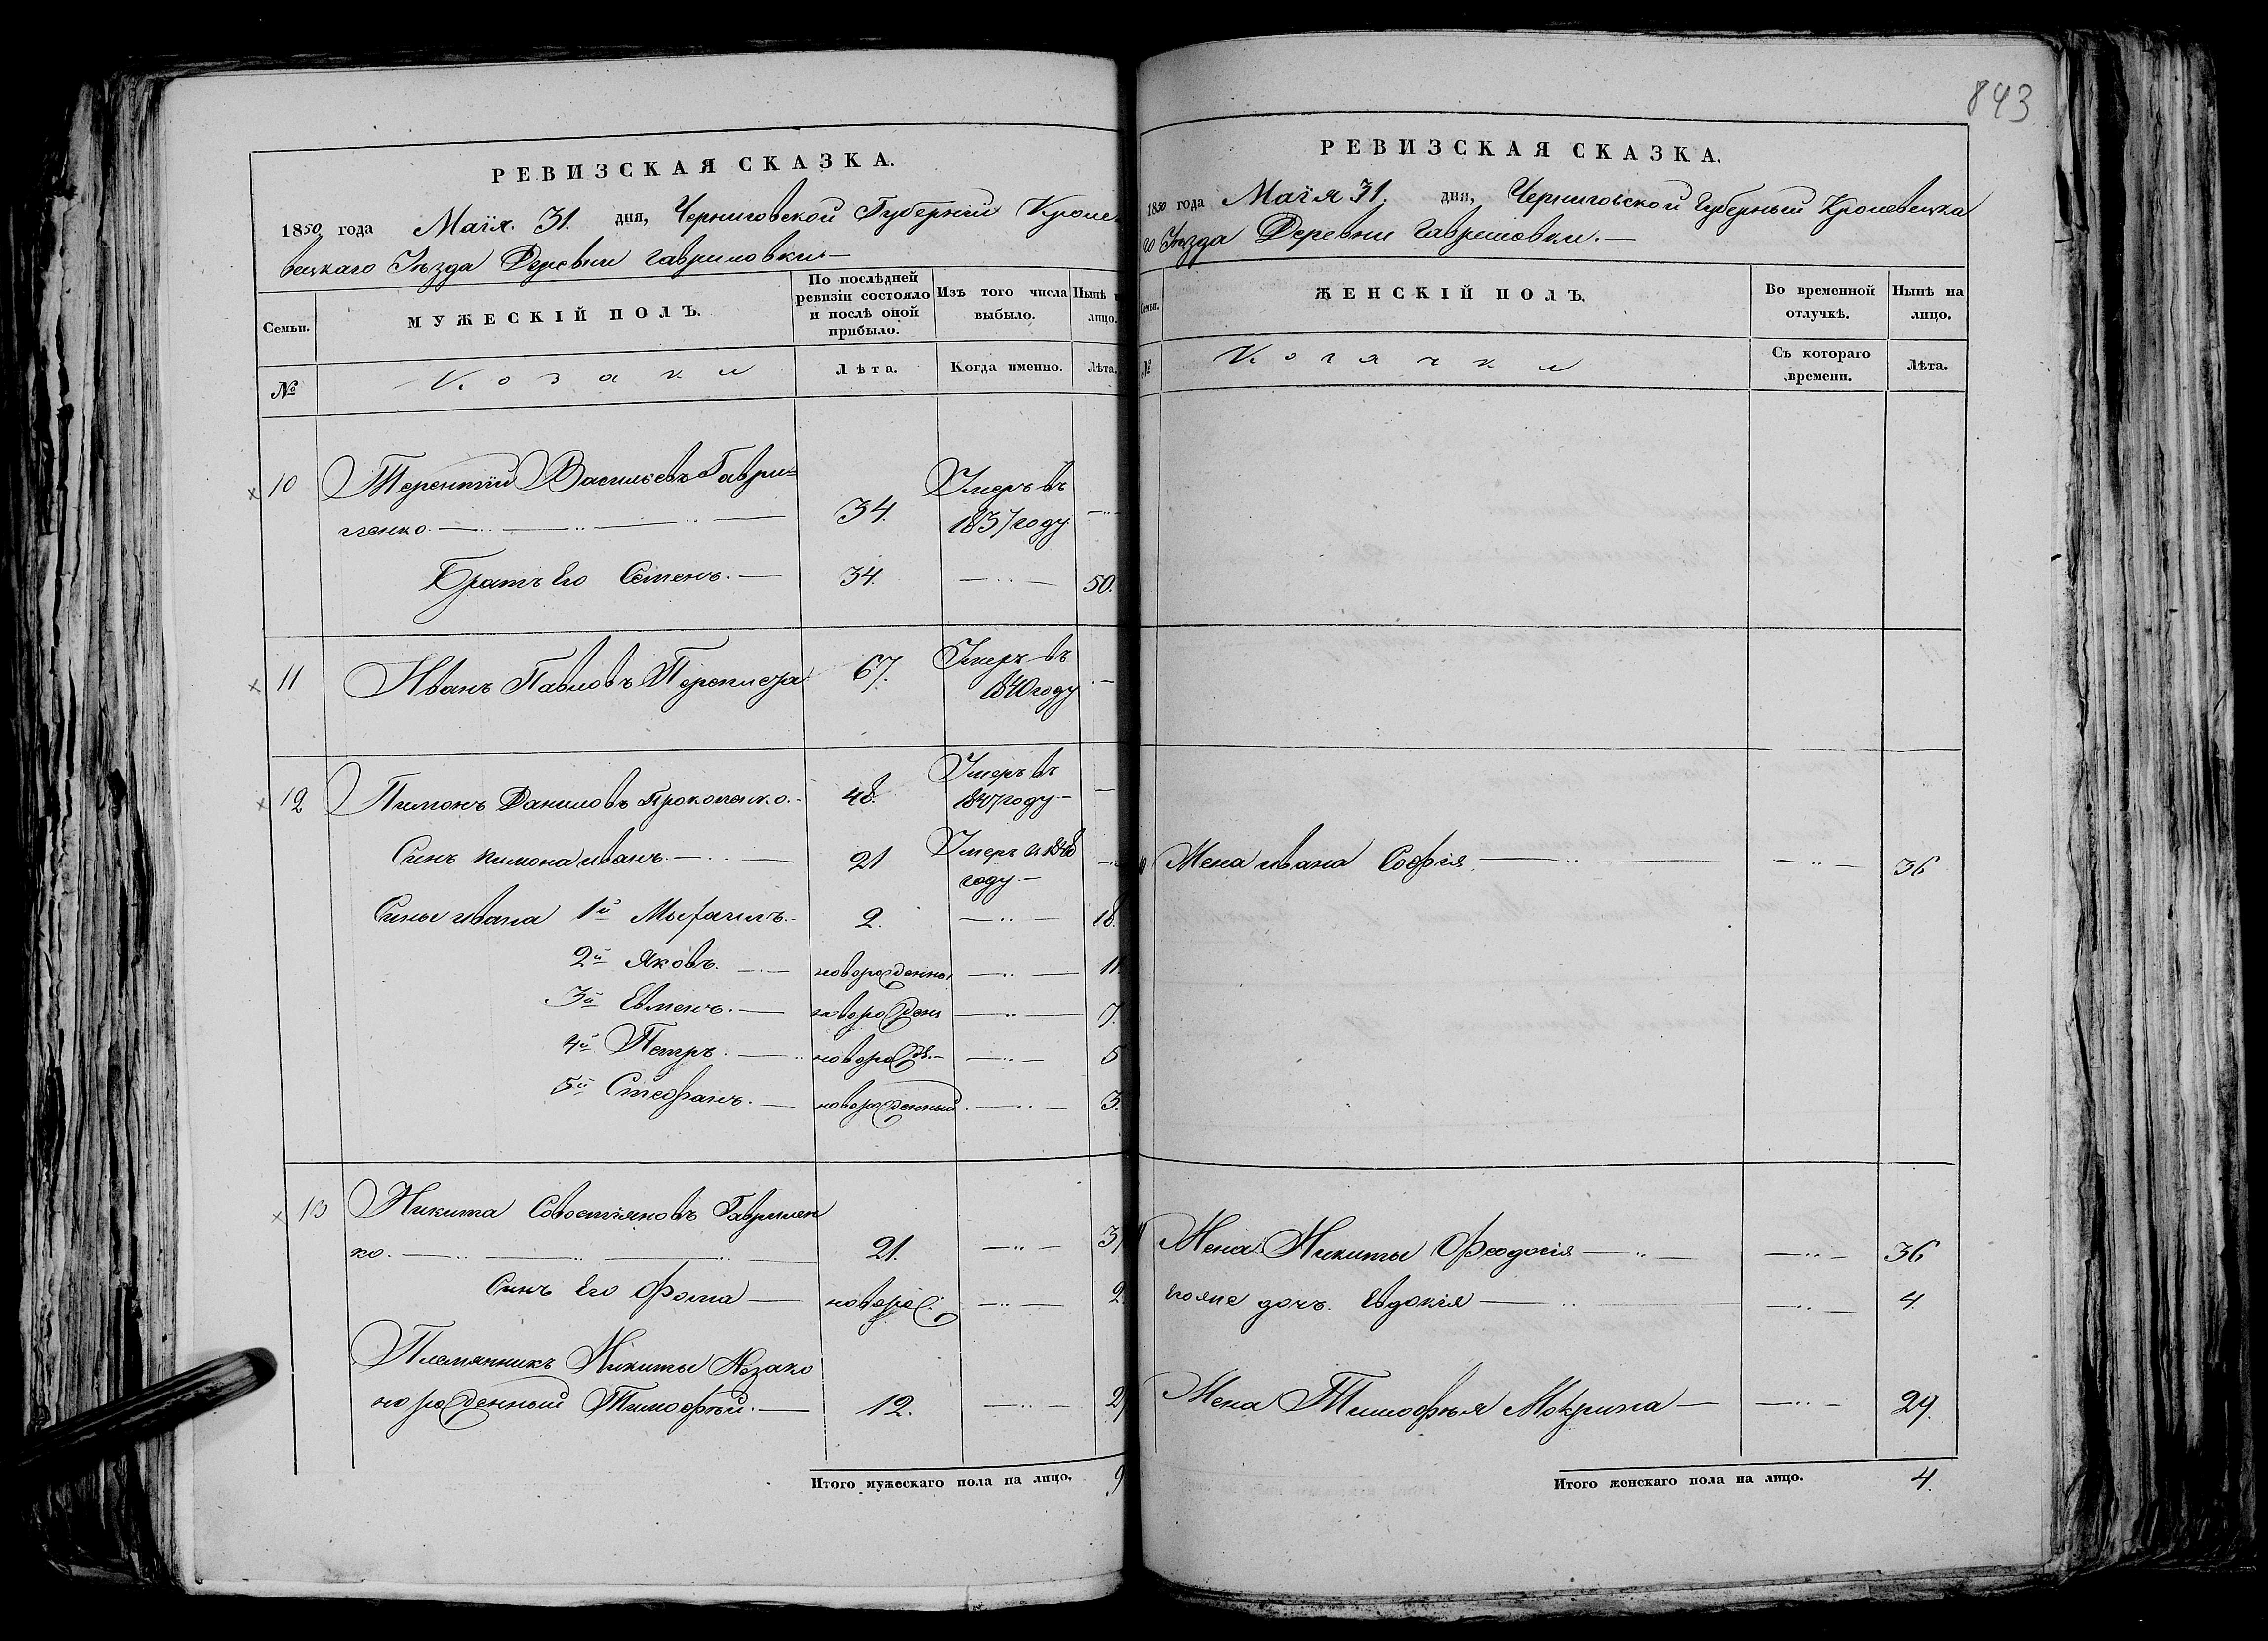 843
РЕВИЗСКАЯ СКАЗКА.
1850 года Маія. 31. дня, Черниговской Губерніи Кроле
вецкаго Уѣзда Деревни Гавриловки
Семьи. МУЖЕСКІЙ ПОЛЪ. По послѣдней ревизіи состояло и послѣ оной прибыло. Изъ того числа выбыло. Нынѣ на лицо.
№ Козаки Лѣта. Когда именно. Лѣта.
10 Терентій Васильевъ Гаври=
ленко. 34. Умеръ въ 1837 году
Братъ Его Семенъ. 34. 50.
11 Иванъ Павловъ 67. Умеръ въ 1840 году
12 Пимонъ Даниловъ Прокопенко. 48. Умеръ въ 1847 году
Синъ пимона иванъ. 21 Умеръ в 1848 году
Сины ивана 1й Михаилъ. 2. 18.
2й Яковъ. новорожденны 11
3й Евменъ. новорожден 7.
4й Петръ. новорожд. 5
5й Стефанъ. новорожденный 3.
13 Никита Савостіяновъ Гаврилен
ко. 21. 3
Синъ Его Фома новорож: 2
Племянникъ Никиты Незако
норожденный Тимофѣй. 12. 2
Итого мужескаго пола на лицо. 9
РЕВИЗСКАЯ СКАЗКА.
1850 года Маія 31. дня, Черниговской Губерніи Кролевецка
го Уѣзда Деревни Гавриловки.
Семьи. ЖЕНСКІЙ ПОЛЪ. Во временной отлучкѣ. Нынѣ на лицо.
№ Козачки Съ котораго времени. Лѣта.
Жена ивана Софія 36
Жена Никиты Феодосія 36
Егоже дочь Евдокія 4.
Жена Тимофѣя Мокрина 29.
Итого женскаго пола на лицо. 4.